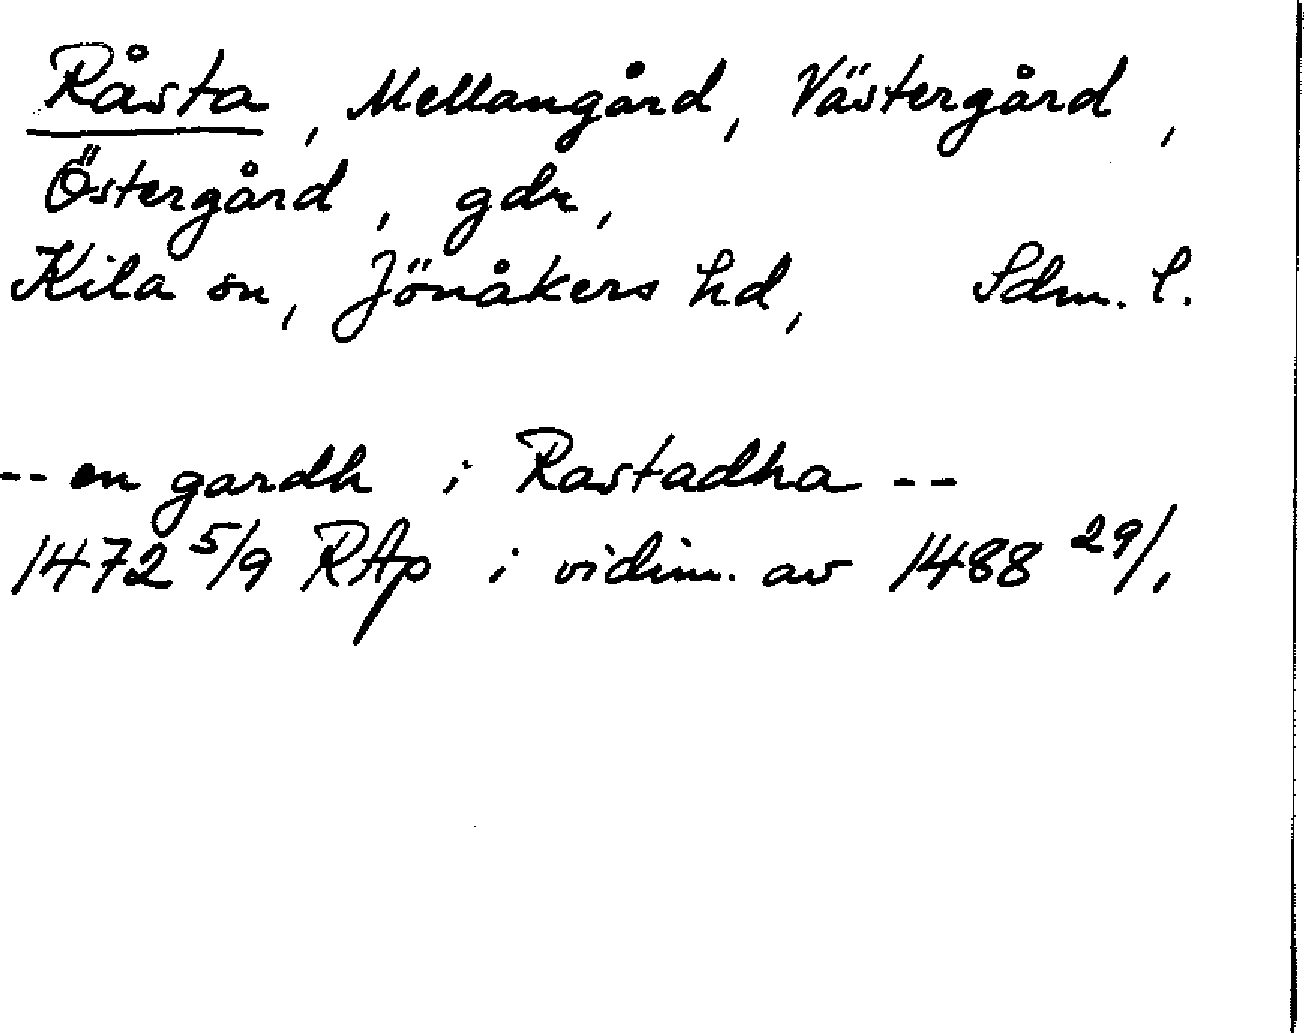 Råsta, Mellangård, Västergård,
Östergård, gdr,
Kila sn, Jönåkers hd, Sdm. l.
-- en gardh i Rastadha --
1472 5/9 RAp i vidim. av 1488 29/1